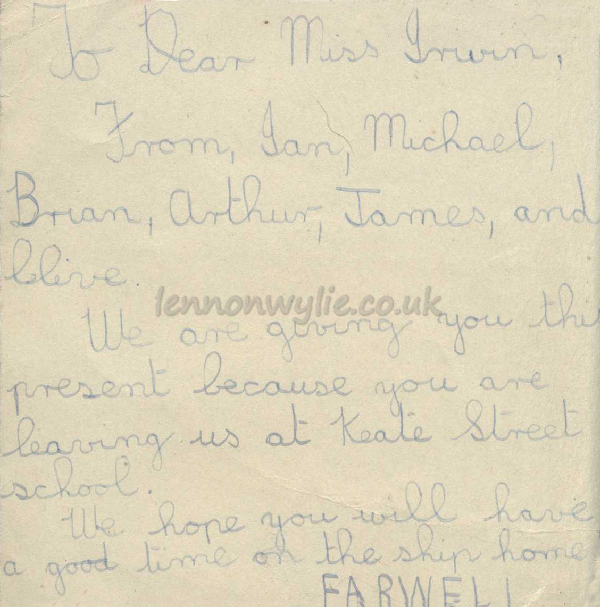 To Dear Miss Irwin,
From, Ian, Michael,
Brian, Arthur, James, and
Clive.
lennonwylie.co.uk
We are giving you this
present because you are
leaving us at Keate Street
school.
We hope you will have
a good time on the ship home
FARWELL